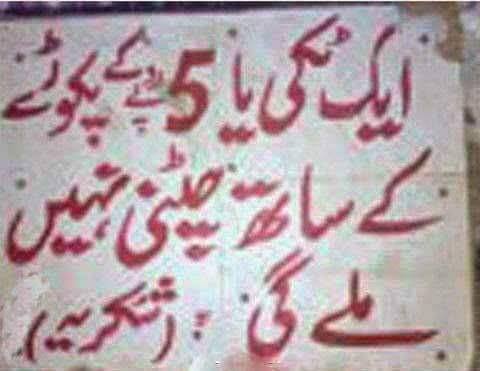 ایک ٹکی یا 5 روپے کے پکوڑے
کے ساتھ چٹنی نہیں
ملے گی : (شکریہ)